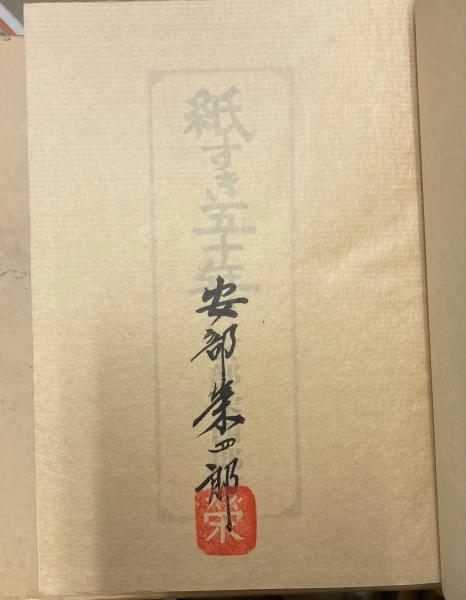 紙すき五十年
安部栄四郎
栄